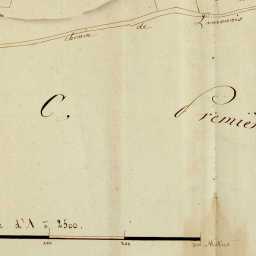 Chemin de Limonais
C. Premiè
e d'1 à 2500.
100 200 300 Mètres